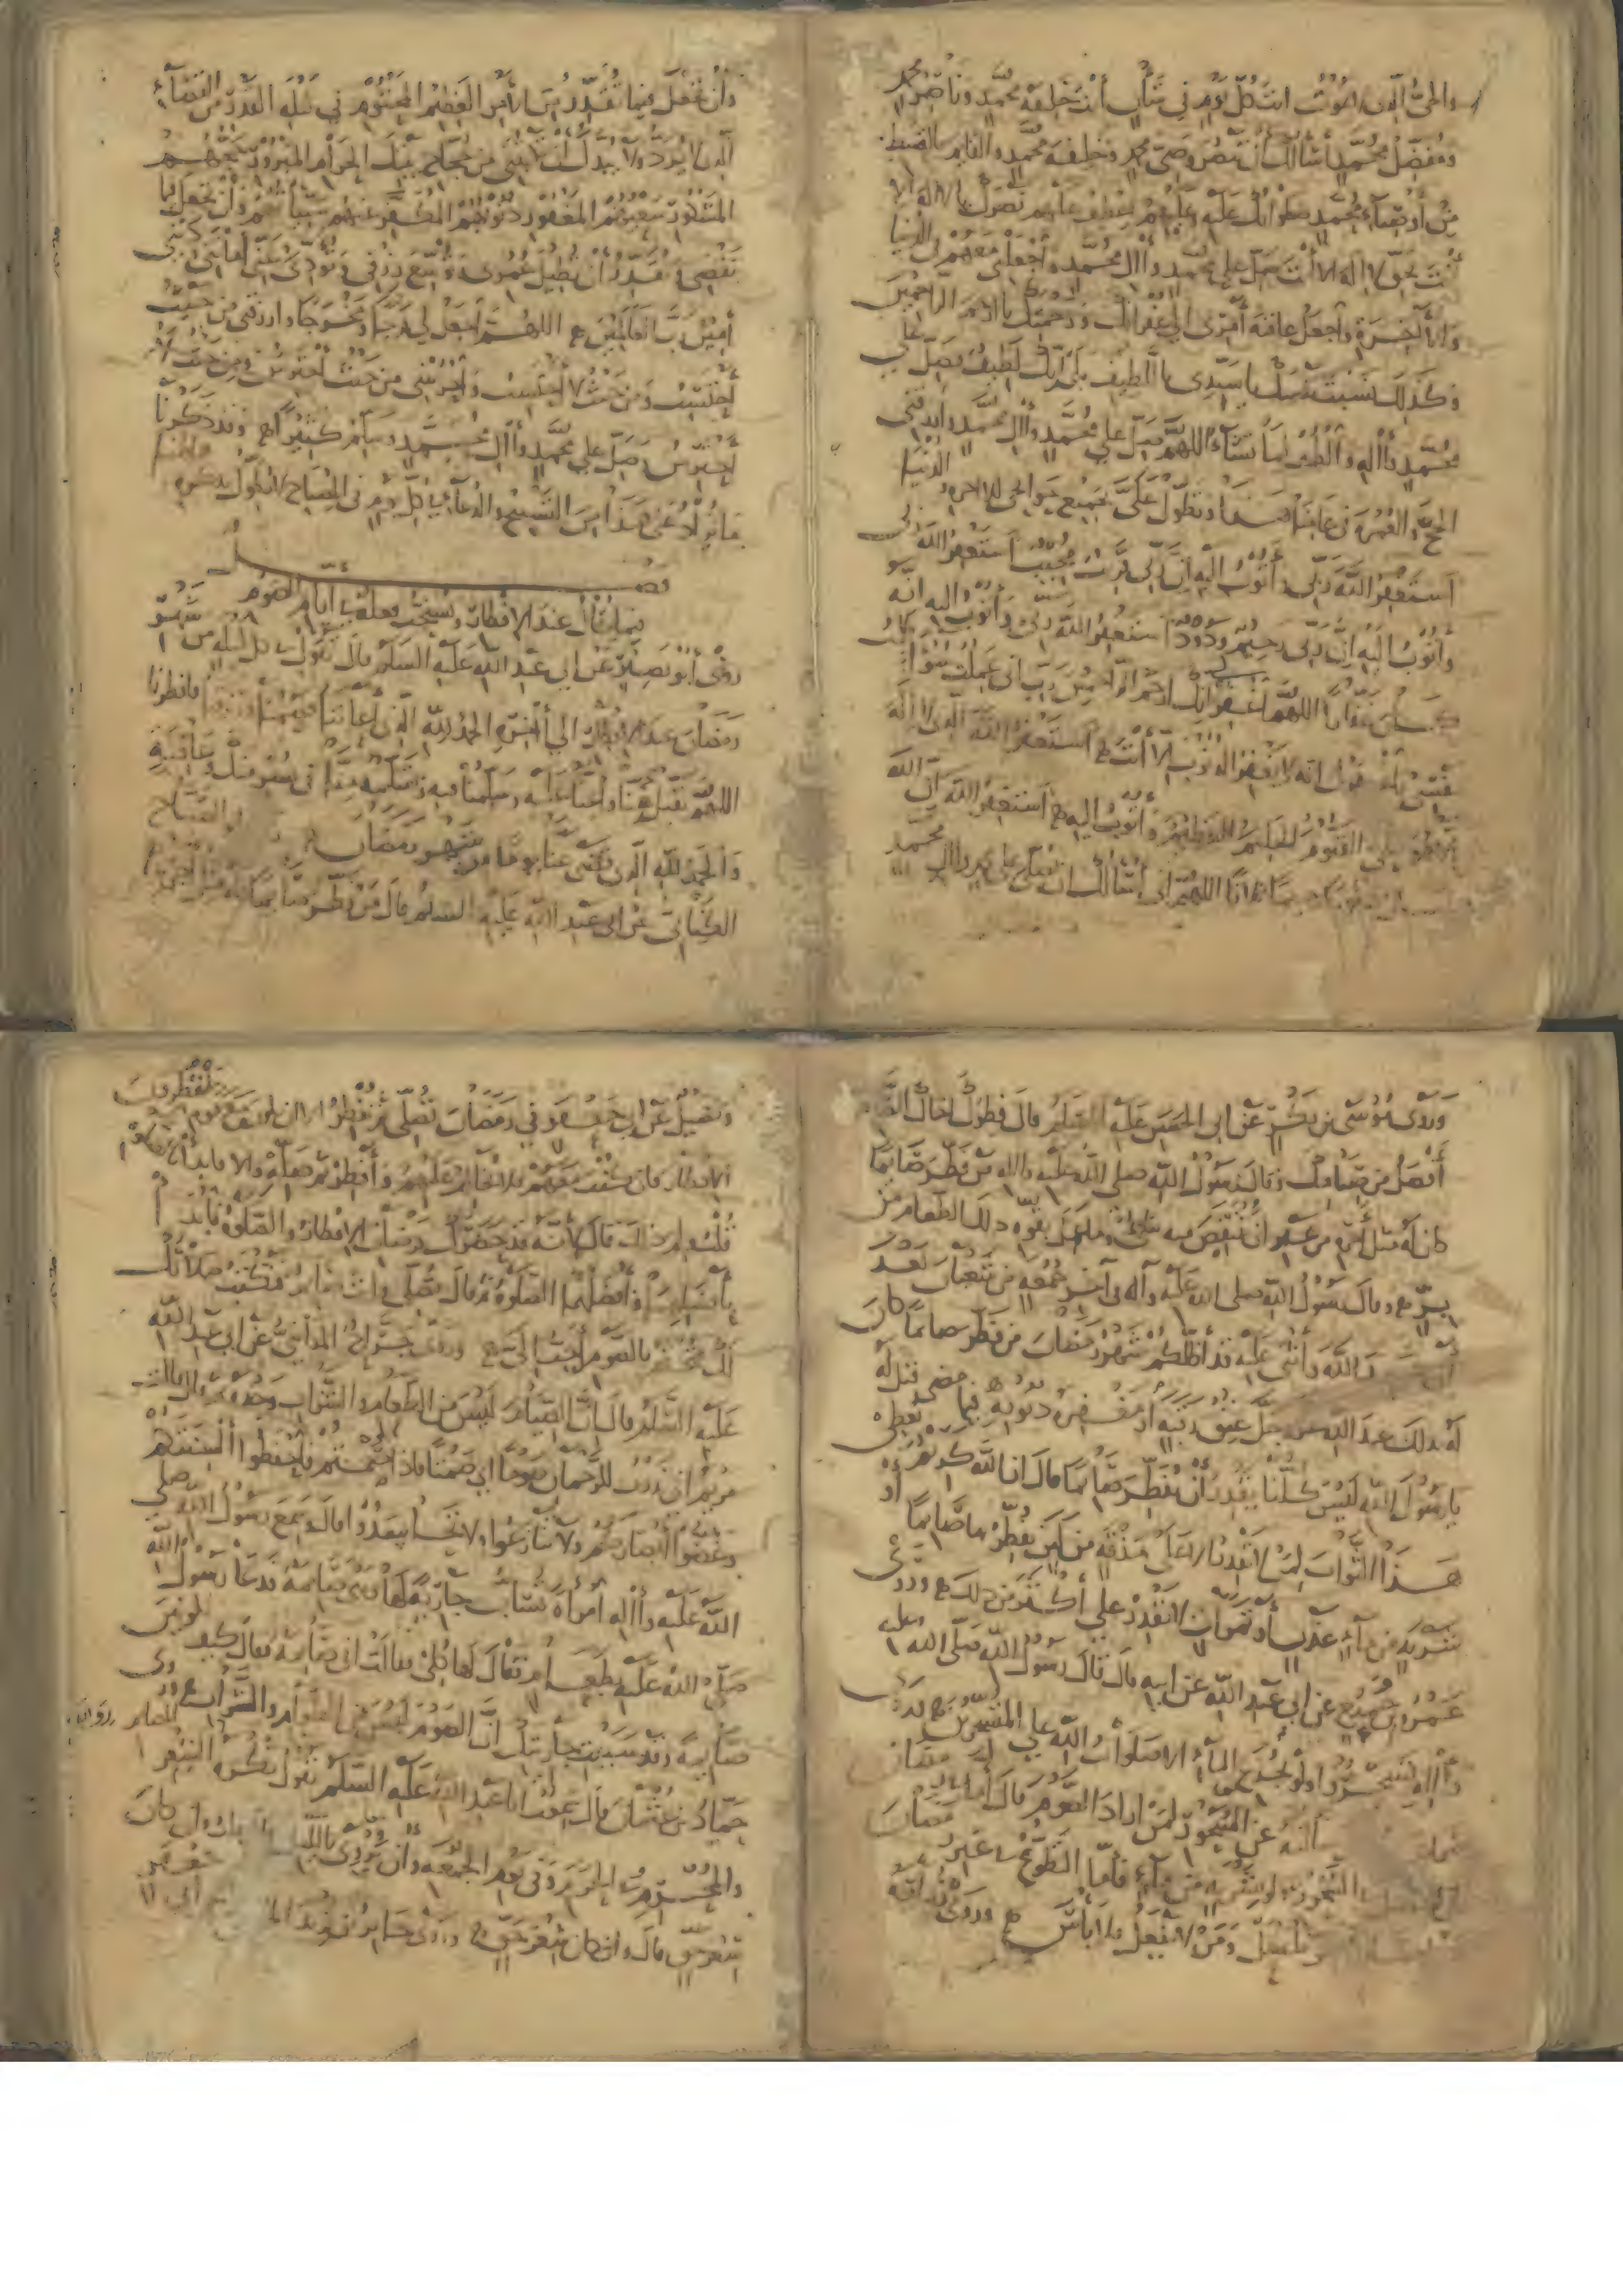 والحي الذي لا يموت انت كل يوم في شأن أنت خليفة محمد وناصر محمد
ومفضل محمد أسألك أن تنصر وصي محمد وخليفة محمد والقائم بالقسط
من أوصياء محمد صلواتك عليه وعليهم اعطف عليهم نصرك يا لا إله إلا
أنت بحق لا إله إلا أنت صل على محمد وآل محمد واجعلني معهم في الدنيا
والآخرة واجعل عاقبة أمري الى غفرانك ورحمتك يا ارحم الراحمين
وكذلك نسبت نفسك يا سيدي باللطيف بلى إنك لطيف فصل على
محمد وآله والطف لما تشاء اللهم صل على محمد وآل محمد وارزقني
الحج والعمرة في عامنا هذا وتطول علي بجميع حوائجي للآخرة والدنيا
استغفر الله ربي وأتوب اليه ان ربي قريب مجيب استغفر الله ربي
وأتوب اليه ان ربي رحيم ودود استغفر الله ربي وأتوب اليه انه
كان غفارا اللهم اغفر لي انك ارحم الراحمين رب اني عملت سوءا
نفسي فاغفر لي انه لا يغفر الذنوب إلا أنت استغفر الله الذي لا إله
إلا هو الحي القيوم الحليم العظيم وأتوب إليه استغفر الله إن الله
كان غفورا رحيما اللهم إني أسألك أن تصلي على محمد وآل محمد
وأن تجعل فيما تقدر من الأمر العظيم المحتوم في ليلة القدر من القضاء
الذي لا يرد ولا يبدل أن تكتبني من حجاج بيتك الحرام المبرور حجهم
المشكور سعيهم المغفور ذنوبهم المكفر عنهم سيئاتهم وأن تجعل فيما
تقضي وتقدر أن تطيل عمري وتوسع رزقي وتؤدي عني أمانتي وديني
آمين رب العالمين اللهم اجعل لي فرجا ومخرجا وارزقني من حيث
أحتسب ومن حيث لا أحتسب واحرسني من حيث أحترس ومن حيث لا
أحترس وصل على محمد وآل محمد وسلم كثيرا وقد ذكرنا
ما يزاد على هذا من التسبيح والدعاء في كل يوم في المصباح لا نطول بذكره هاهنا
فصل
فيما يقال عند الإفطار ويستحب فعله في أيام الصوم
روى أبو بصير عن ابي عبد الله عليه السلم قال تقول في كل ليلة من شهر
رمضان عند الإفطار إلى آخره الحمد لله الذي أعاننا فصمنا ورزقنا فافطرنا
اللهم تقبل منا وأعنا عليه وسلمنا فيه وتسلمه منا في يسر منك وعافية
والحمد لله الذي قضى عنا يوما من شهر رمضان وابو الصباح
الكناني عن ابي عبد الله عليه السلم قال من فطر صائما فله مثل اجره
وروى موسى بن بكر عن ابي الحسن عليه السلم قال فطرك أخاك الصائم
أفضل من صيامك وقال رسول الله صلى الله عليه وآله من فطر صائما
كان له مثل أجره من غير أن ينقص منه شيء وما عمل بقوة ذلك الطعام من
بر وقال رسول الله صلى الله عليه وآله في آخر جمعة من شعبان بعد
أن حمد الله وأثنى عليه قد أظلكم شهر رمضان من فطر صائما كان
له بذلك عند الله عز وجل عتق رقبة ومغفرة ذنوبه فيما مضى قيل له
يا رسول الله ليس كلنا يقدر أن يفطر صائما قال ان الله كريم يعطي
هذا الثواب لمن لا يقدر إلا على مذقة من لبن يفطر بها صائما أو
شربة من ماء عذب أو تمرات لا يقدر على أكثر من ذلك وروى
عمرو بن جميع عن ابي عبد الله عن ابيه قال قال رسول الله صلى الله عليه
وآله تسحروا ولو بجرع الماء ألا صلوات الله على المتسحرين
سألته عن السحور لمن أراد الصوم قال أما في رمضان
فان الفضل في السحور ولو بشربة من ماء فأما التطوع في غير رمضان
فمن أحب أن يتسحر فليفعل ومن لا يفعل فلا بأس وروى زرارة
وفضيل عن ابي جعفر في رمضان تصلي ثم تفطر الا ان تكون مع قوم ينتظرون
الافطار فان كنت معهم فلا تخالف عليهم وأفطر ثم صل والا فابدأ بالصلوة
قلت ولم ذلك قال لأنه قد حضرك فرضان الافطار والصلوة فابدأ
بأفضلهما وأفضلهما الصلوة ثم قال تصلي وانت صائم فتكتب صلاتك
تلك فتختم بالصوم أحب إلي وروى جراح المدائني عن ابي عبد الله
عليه السلم قال إن الصيام ليس من الطعام والشراب وحده ثم قال قالت
مريم اني نذرت للرحمان صوما أي صمتا فاذا صمتم فاحفظوا ألسنتكم
وغضوا أبصاركم ولا تنازعوا ولا تحاسدوا قال وسمع رسول الله صلى
الله عليه وآله امرأة تساب جارية لها وهي صائمة فدعا رسول الله
صلى الله عليه بطعام فقال لها كلي فقالت اني صائمة فقال كيف تكونين
صائمة وقد سببت جاريتك ان الصوم ليس من الطعام والشراب وروى
حماد بن عثمان قال سمعت ابا عبد الله عليه السلم يقول يكره الشعر للصائم
والمحرم وفي الحرم وفي يوم الجمعة وأن يروى بالليل قال قلت وان كان
شعر حق قال وان كان شعر حق وروى جابر بن يزيد عن أبي جعفر